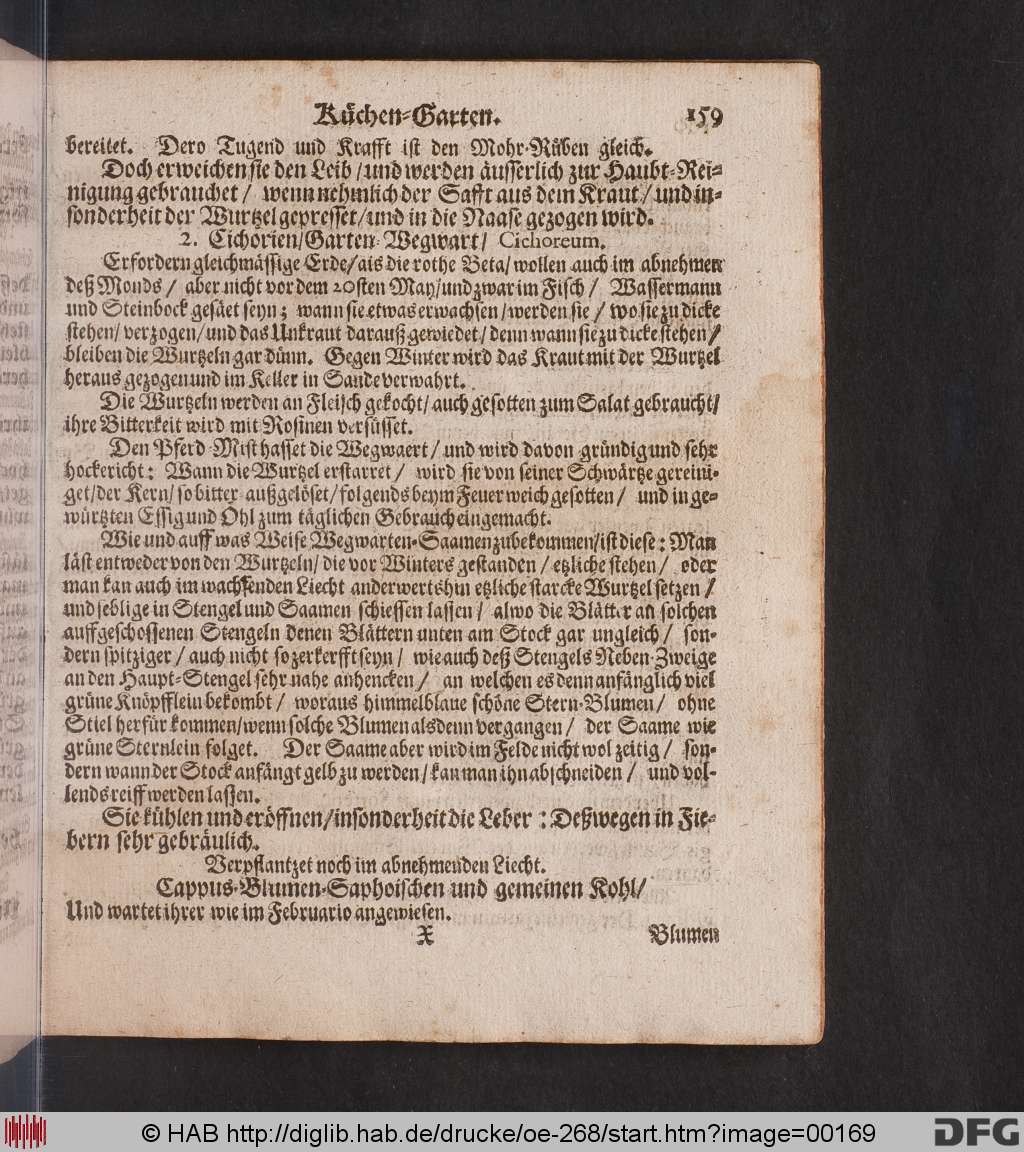 Küchen-Garten. 159
bereitet. Dero Tugend und Krafft ist den Mohr-Rüben gleich.
Doch erweichen sie den Leib / und werden äusserlich zur Haubt-Rei-
nigung gebrauchet / wenn nehmlich der Safft aus dem Kraut / und in-
sonderheit der Wurtzel gepresset / und in die Naase gezogen wird.
2. Cichorien/Garten-Wegwart/ Cichoreum.
Erfordern gleichmässige Erde/ als die rothe Beta/ wollen auch im abnehmen
deß Monds / aber nicht vor dem 20sten May/und zwar im Fisch / Wassermann
und Steinbock gesäet seyn; wann sie etwas erwachsen / werden sie / wo sie zu dicke
stehen/ verzogen/und das Unkraut darauß gewiedet/ denn wann sie zu dicke stehen/
bleiben die Wurtzeln gar dünn. Gegen Winter wird das Kraut mit der Wurtzel
heraus gezogen und im Keller in Sande verwahrt.
Die Wurtzeln werden an Fleisch gekocht/ auch gesotten zum Salat gebraucht/
ihre Bitterkeit wird mit Rosinen versüsset.
Den Pferd-Mist hasset die Wegwaert / und wird davon gründig und sehr
hockericht: Wann die Wurtzel erstarret / wird sie von seiner Schwärtze gereini-
get/der Kern/ so bitter außgelöset/folgends beym Feuer weich gesotten / und in ge-
würtzten Essig und Ohl zum täglichen Gebrauch eingemacht.
Wie und auff was Weise Wegwarten-Saamen zubekommen/ist diese: Man
läst entweder von den Wurtzeln/ die vor Winters gestanden / etzliche stehen / oder
man kan auch im wachsenden Liecht anderwertshin etzliche starcke Wurtzel setzen /
und seblige in Stengel und Saamen schiessen lassen / alwo die Blätter an solchen
auffgeschossenen Stengeln denen Blättern unten am Stock gar ungleich / son-
dern spitziger / auch nicht so zerkerfft seyn / wie auch deß Stengels Neben-Zweige
an den Haupt-Stengel sehr nahe anhencken / an welchen es denn anfänglich viel
grüne Knöpfflein bekombt / woraus himmelblaue schöne Stern-Blumen / ohne
Stiel herfür kommen/wenn solche Blumen alsdenn vergangen / der Saame wie
grüne Sternlein folget. Der Saame aber wird im Felde nicht wol zeitig / son-
dern wann der Stock anfängt gelb zu werden / kan man ihn abschneiden / und vol-
lends reiff werden lassen.
Sie kühlen und eröffnen/insonderheit die Leber: Deßwegen in Fie-
bern sehr gebräulich.
Verpflantzet noch im abnehmenden Liecht.
Cappus-Blumen-Saphoischen und gemeinen Kohl/
Und wartet ihrer wie im Februario angewiesen.
X Blumen
© HAB http://diglib.hab.de/drucke/oe-268/start.htm?image=00169 DFG